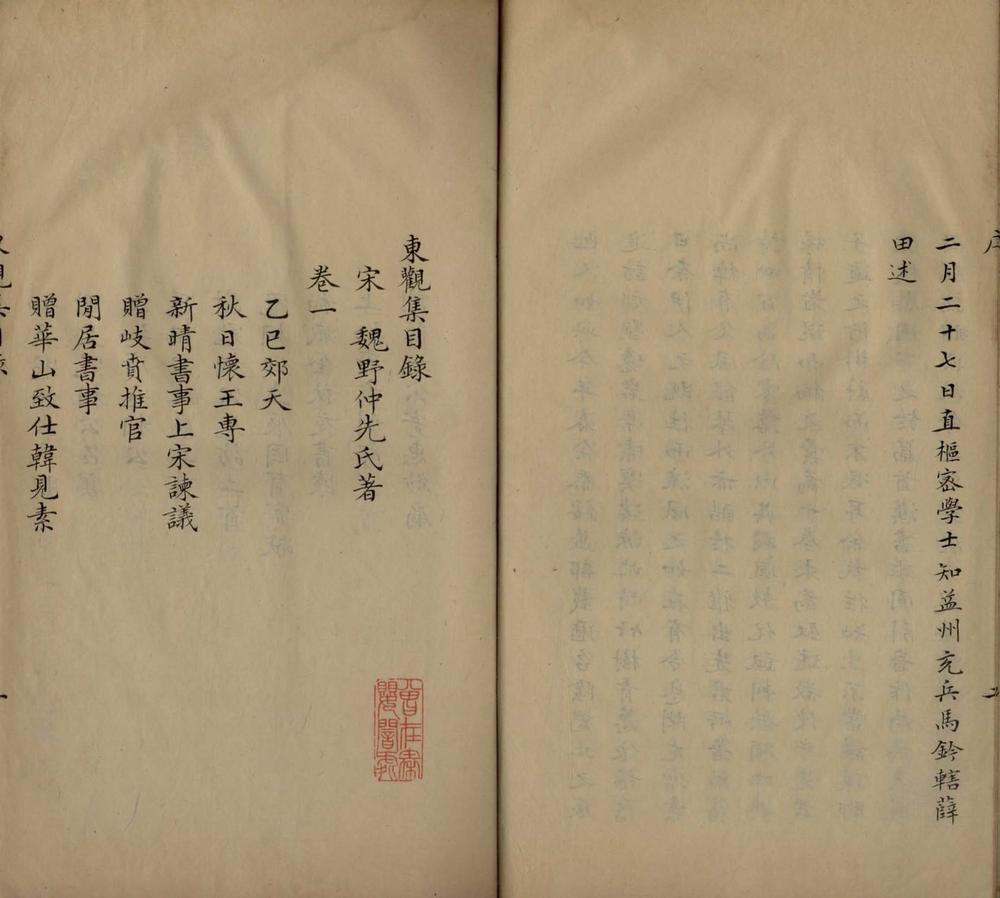 序
二月二十七日直樞密學士知益州充兵馬鈐轄薛
田述
東觀集目錄
宋 魏野仲先氏著
卷一
乙巳郊天
秋日懷王專
新晴書事上宋諫議
贈岐賁推官
閒居書事
贈華山致仕韓見素
曾在秦嬰闇處